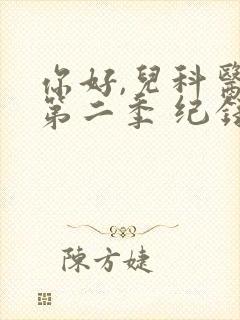 你好,兒科醫
第二季 纪錄
陳方婕